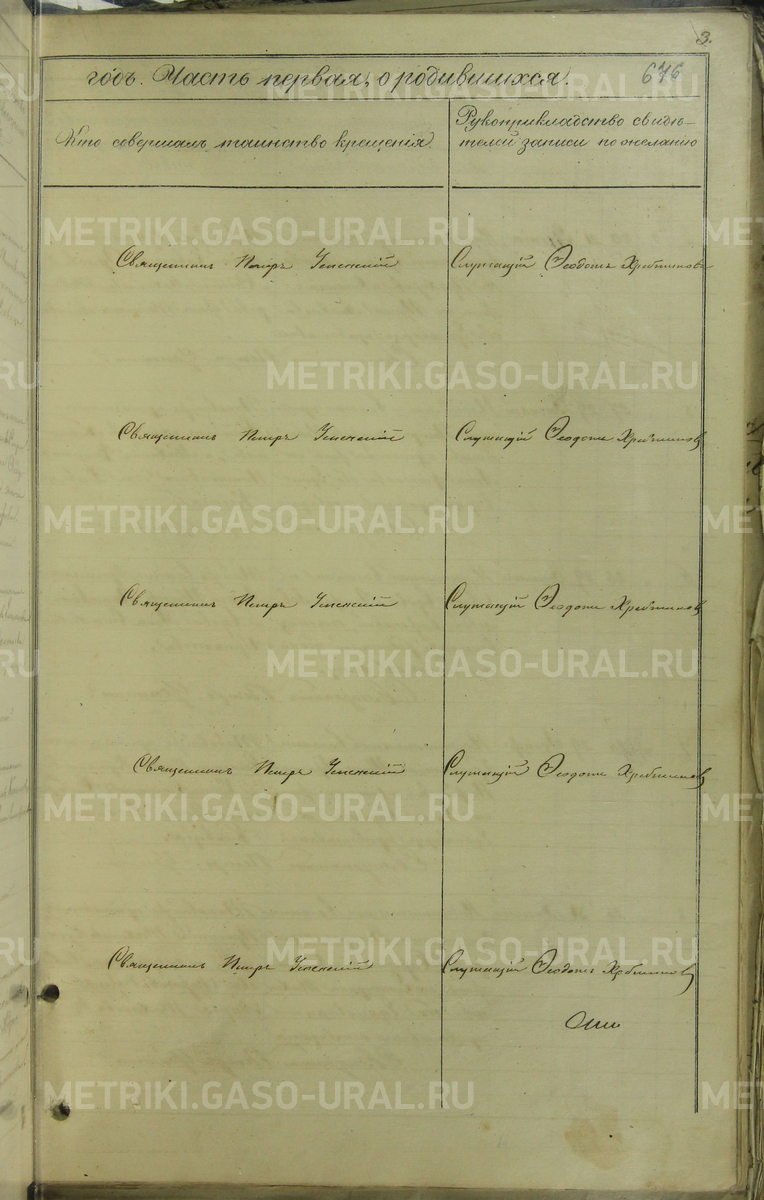 3.
годъ. Часть первая, о родившихся. 676
Кто совершалъ таинство крещенія.
Рукоприкладство свидѣ-
телей записи по желанію
METRIKI.GASO-URAL.RU
Священникъ Петръ Успенскій
Служащій Ѳеодотъ Хребтиковъ
METRIKI.GASO-URAL.RU
Священникъ Петръ Успенскій
Служащій Ѳеодотъ Хребтиковъ
METRIKI.GASO-URAL.RU
Священникъ Петръ Успенскій
Служащій Ѳеодотъ Хребтиковъ
METRIKI.GASO-URAL.RU
Священникъ Петръ Успенскій
Служащій Ѳеодотъ Хребтиковъ
METRIKI.GASO-URAL.RU
Священникъ Петръ Успенскій
Служащій Ѳеодотъ Хребтиковъ
METRIKI.GASO-URAL.RU
METRIKI.GASO-URAL.RU